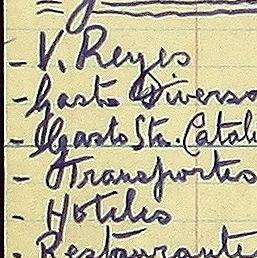 - V. Reyes
- Gasto Diverso
- Gasto Sta. Catali
- Transportes
- Hoteles
- Restaurante